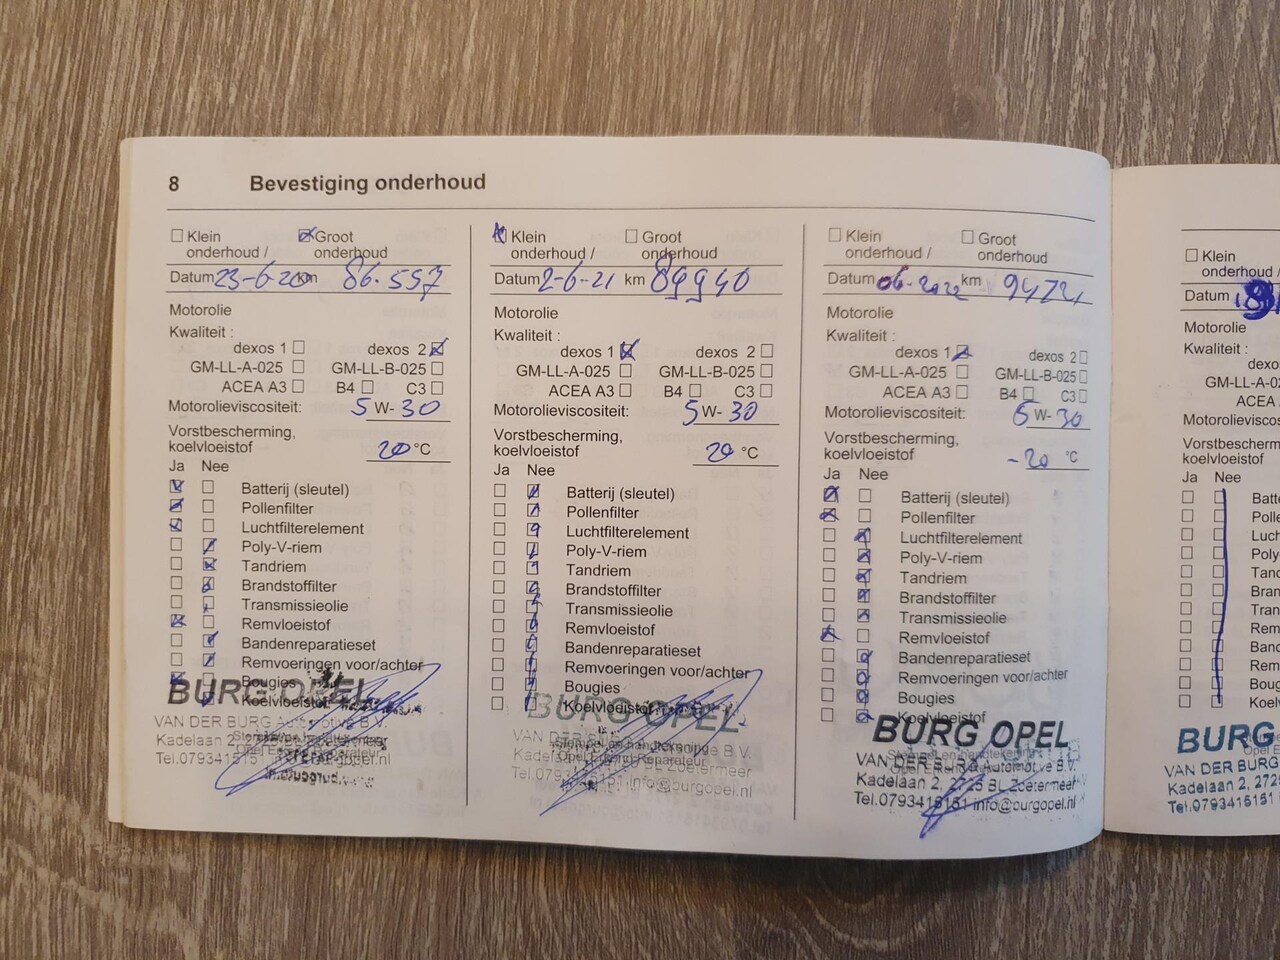 8 Bevestiging onderhoud
Klein onderhoud / Groot onderhoud
Datum 23-6-20 km 86.557
Motorolie
Kwaliteit :
dexos 1 dexos 2
GM-LL-A-025 GM-LL-B-025
ACEA A3 B4 C3
Motorolieviscositeit: 5 W- 30
Vorstbescherming,
koelvloeistof 20 °C
Ja Nee
Batterij (sleutel)
Pollenfilter
Luchtfilterelement
Poly-V-riem
Tandriem
Brandstoffilter
Transmissieolie
Remvloeistof
Bandenreparatieset
Remvoeringen voor/achter
Bougies
Koelvloeistof
BURG OPEL
VAN DER BURG Automotive B.V.
Kadelaan 2,
Opel Erkend Reparateur
Tel.0793415151
Klein onderhoud / Groot onderhoud
Datum 2-6-21 km 89940
Motorolie
Kwaliteit :
dexos 1 dexos 2
GM-LL-A-025 GM-LL-B-025
ACEA A3 B4 C3
Motorolieviscositeit: 5 W- 30
Vorstbescherming,
koelvloeistof 20 °C
Ja Nee
Batterij (sleutel)
Pollenfilter
Luchtfilterelement
Poly-V-riem
Tandriem
Brandstoffilter
Transmissieolie
Remvloeistof
Bandenreparatieset
Remvoeringen voor/achter
Bougies
Koelvloeistof
BURG OPEL
VAN DER BURG Automotive B.V.
Stempel en handtekening
Kadelaan 2, 2725 BL Zoetermeer
Opel Erkend Reparateur
Tel.0793415151 info@burgopel.nl
Klein onderhoud / Groot onderhoud
Datum 06-2022 km
Motorolie
Kwaliteit :
dexos 1 dexos 2
GM-LL-A-025 GM-LL-B-025
ACEA A3 B4 C3
Motorolieviscositeit: 5 W- 30
Vorstbescherming,
koelvloeistof -20 °C
Ja Nee
Batterij (sleutel)
Pollenfilter
Luchtfilterelement
Poly-V-riem
Tandriem
Brandstoffilter
Transmissieolie
Remvloeistof
Bandenreparatieset
Remvoeringen voor/achter
Bougies
Koelvloeistof
BURG OPEL
Stempel en handtekening
VAN DER BURG Automotive B.V.
Kadelaan 2, 2725 BL Zoetermeer
Tel.0793415151 info@burgopel.nl
Klein
onderhoud /
Datum
Motorolie
Kwaliteit :
GM-LL-A-02
ACEA
Motorolieviscos
Vorstbescherm
koelvloeistof
Ja Nee
Batte
Polle
Luch
Poly
Tand
Bran
Tran
Rem
Band
Rem
Boug
Koel
BURG
VAN DER BURG
Kadelaan 2, 272
Tel.0793415151